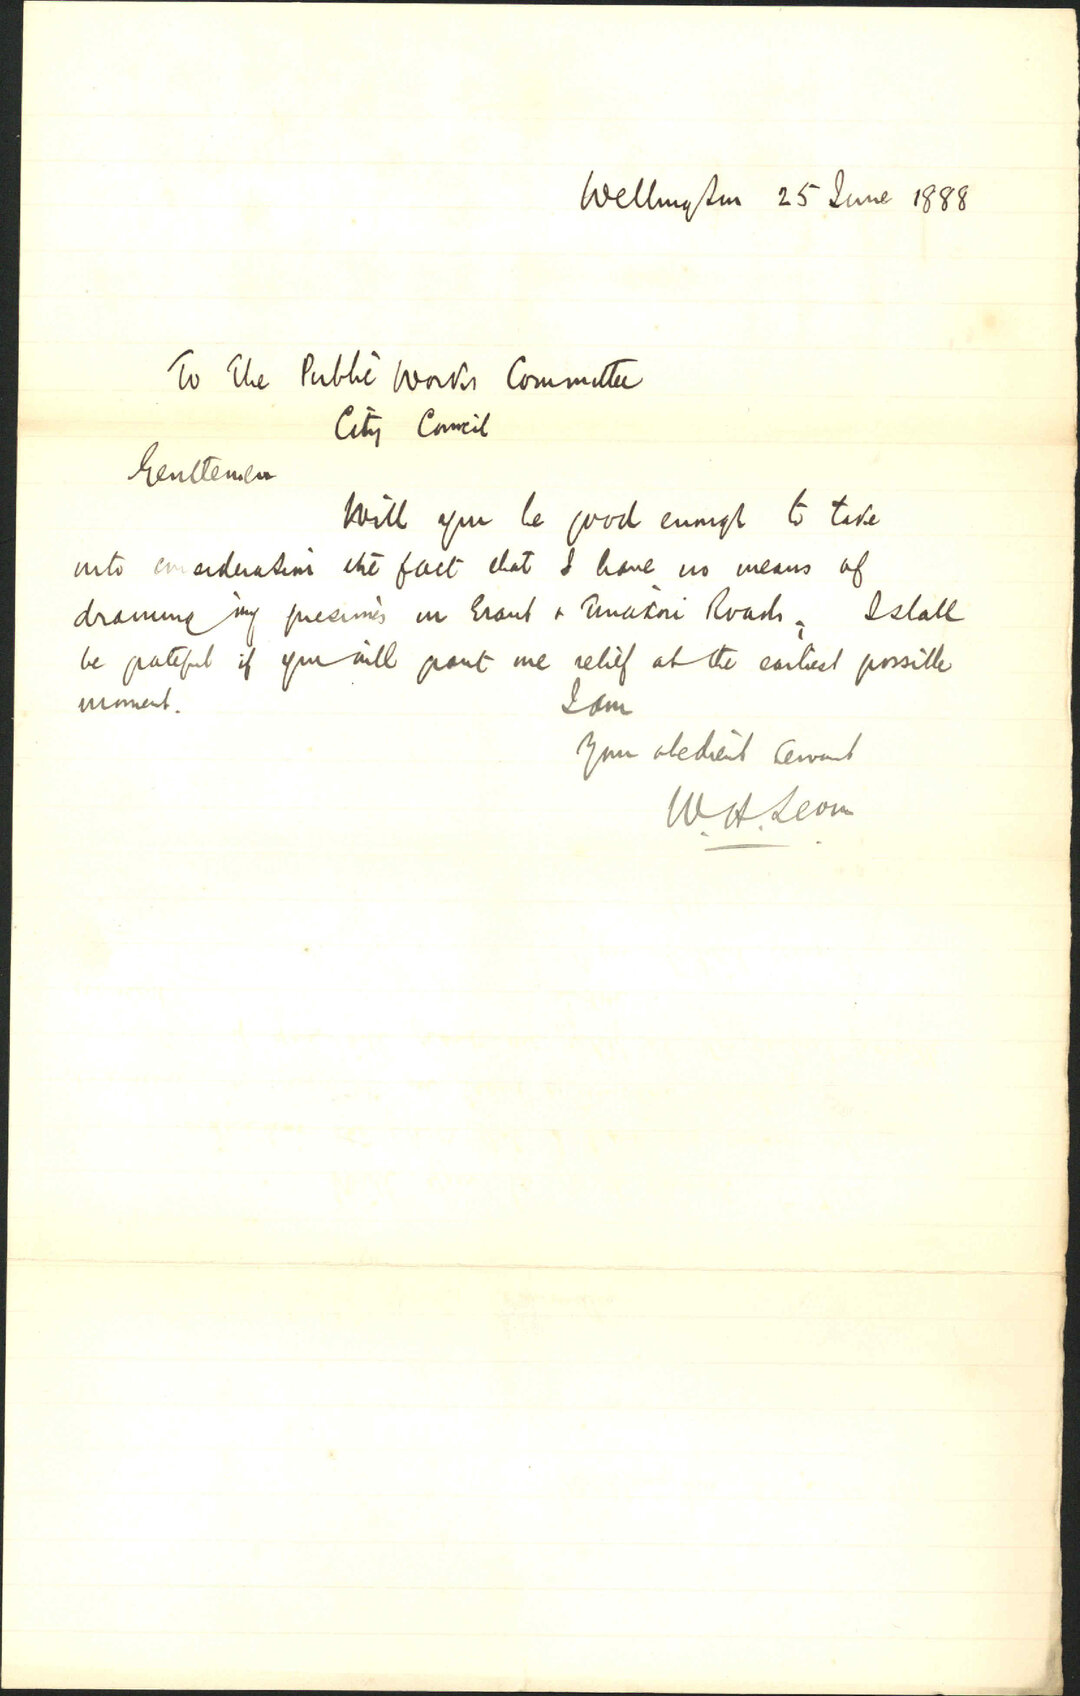 Wellington 25 June 1888
To The Public Works Committee
City Council
Gentlemen
Will you be good enough to take
into consideration the fact that I have no means of
draining my premises in Grant & Tinakori Roads. I shall
be grateful if you will grant me relief at the earliest possible
moment.
I am
Your obedient servant
W. H.